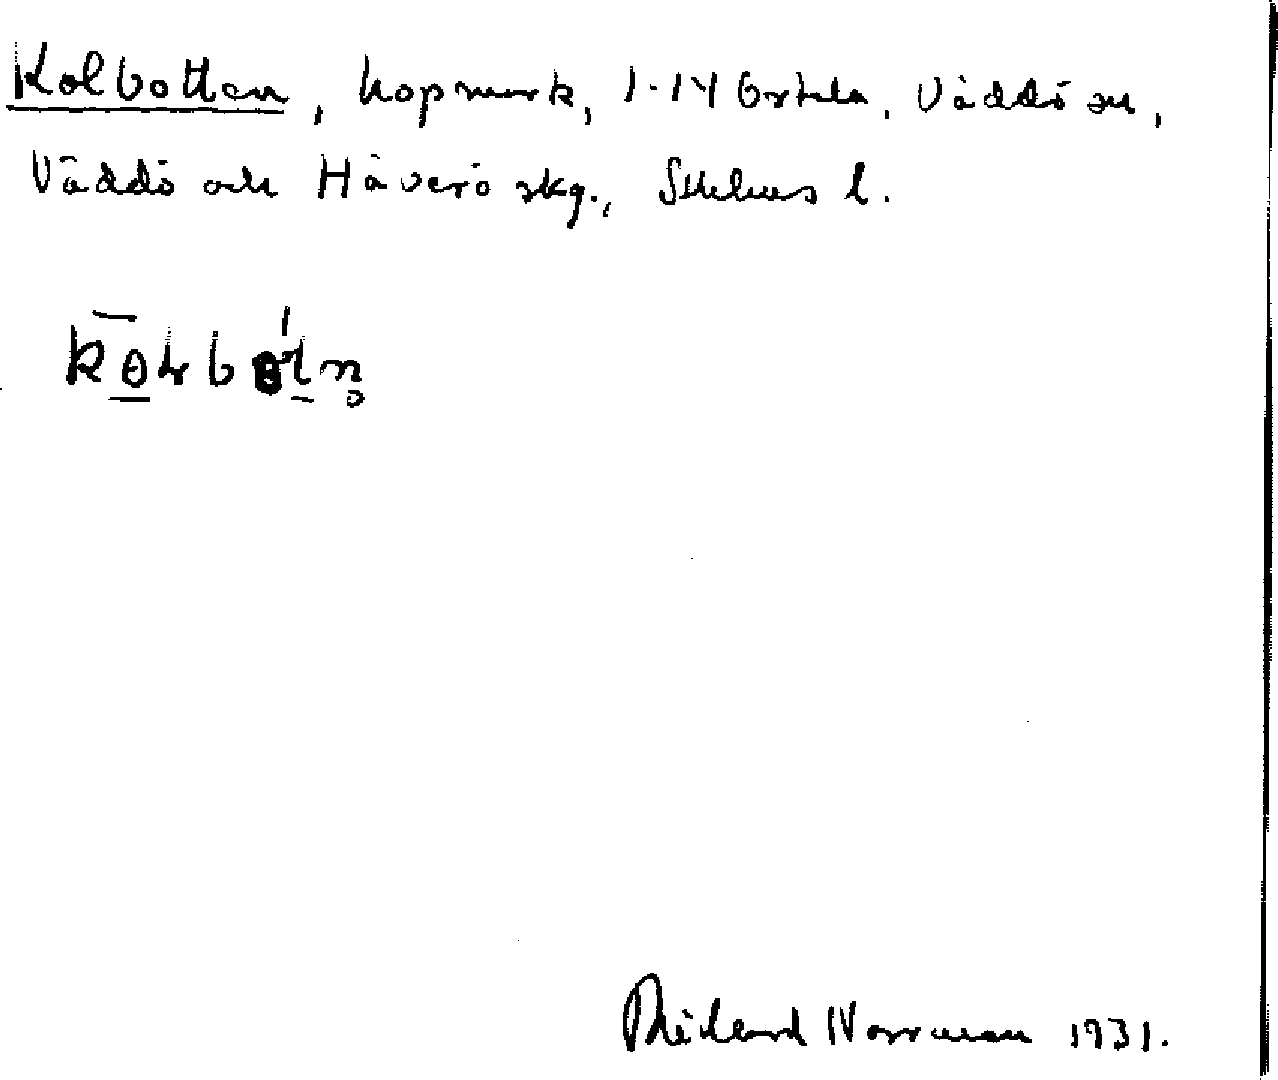 Kolbotten, hopmark, 1-14 Ortala, Väddö sn,
Väddö och Häverö skg., Sthlms l.
Richard Norrman 1931.